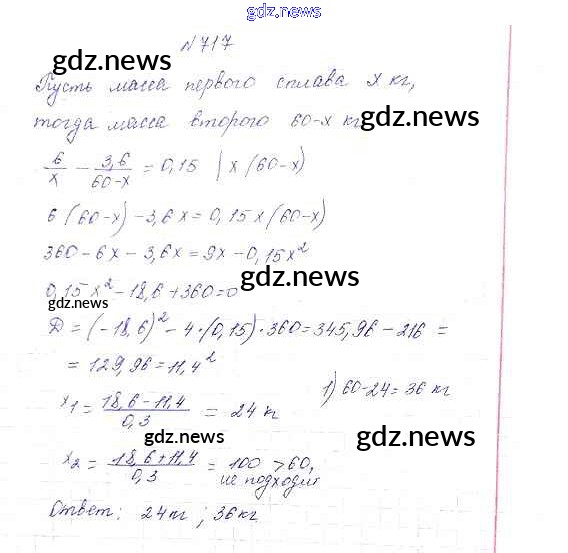 gdz.news
№717
gdz.news
Пусть масса первого сплава x кг,
тогда масса второго 60-x кг
gdz.news
6/x - 3,6/60-x = 0,15 | x(60-x)
6(60-x)-3,6x=0,15x(60-x)
360-6x-3,6x=9x-0,15x²
gdz.news
0,15x²-18,6+360=0
gdz.news
Д=(-18,6)²-4·(0,15)·360=345,96-216=
=129,96=11,4²
x1=18,6-11,4/0,3=24 кг
1) 60-24=36 кг
gdz.news
gdz.news
x2=18,6+11,4/0,3=100>60,
не подходит
gdz.news
Ответ: 24кг; 36кг